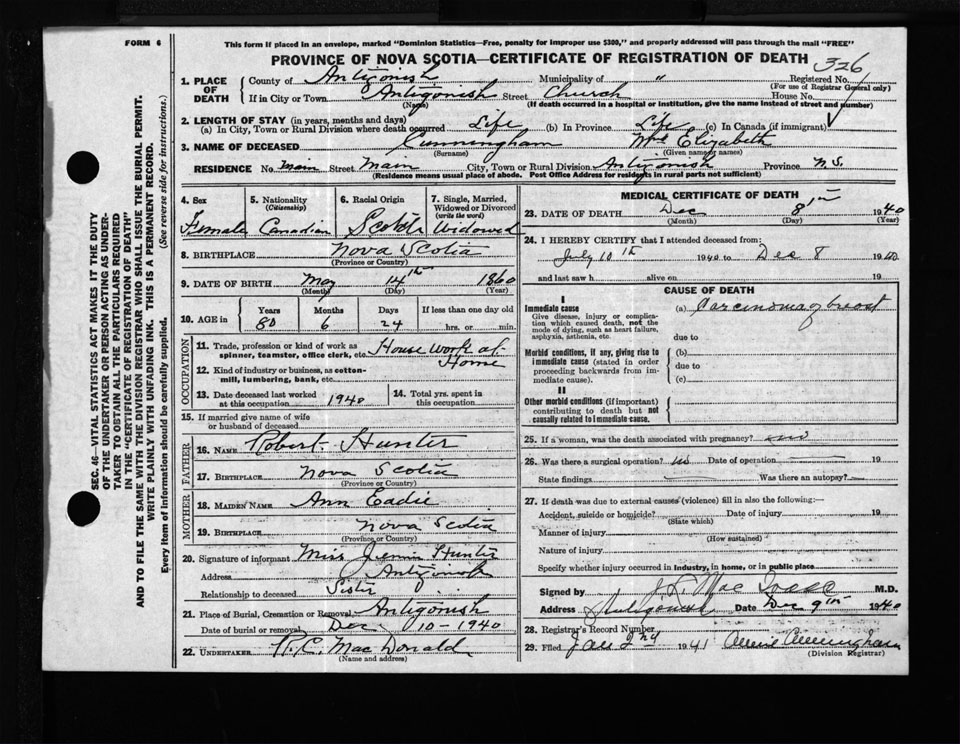 FORM 6
This form if placed in an envelope, marked "Dominion Statistics—Free, penalty for improper use $300," and properly addressed will pass through the mail "FREE"
PROVINCE OF NOVA SCOTIA—CERTIFICATE OF REGISTRATION OF DEATH
326
1. PLACE OF DEATH
County of Antigonish Municipality of " Registered No.
(For use of Registrar General only)
If in City or Town Antigonish Street Church House No.
(Name) (If death occurred in a hospital or institution, give the name instead of street and number)
2. LENGTH OF STAY (in years, months and days)
(a) In City, Town or Rural Division where death occurred Life (b) In Province Life (c) In Canada (if immigrant)
3. NAME OF DECEASED Cunningham Mrs Elizabeth
(Surname) (Given name or names)
RESIDENCE No. main Street Main City, Town or Rural Division Antigonish Province N.S.
(Residence means usual place of abode. Post Office Address for residents in rural parts not sufficient)
4. Sex Female
5. Nationality (Citizenship) Canadian
6. Racial Origin Scotch
7. Single, Married, Widowed or Divorced (write the word) Widowed
8. BIRTHPLACE Nova Scotia
(Province or Country)
9. DATE OF BIRTH May 14th 1860
(Month) (Day) (Year)
10. AGE in Years Months Days If less than one day old
80 6 24 hrs. or min.
OCCUPATION
11. Trade, profession or kind of work as spinner, teamster, office clerk, etc. House work at Home
12. Kind of industry or business, as cotton-mill, lumbering, bank, etc.
13. Date deceased last worked at this occupation 1940
14. Total yrs. spent in this occupation
15. If married give name of wife or husband of deceased
FATHER
16. NAME Robert Hunter
17. BIRTHPLACE Nova Scotia
(Province or Country)
MOTHER
18. MAIDEN NAME Ann Eadie
19. BIRTHPLACE Nova Scotia
(Province or Country)
20. Signature of informant Miss Jennie Hunter
Address Antigonish
Relationship to deceased Sister
21. Place of Burial, Cremation or Removal Antigonish
Date of burial or removal Dec 10-1940
22. UNDERTAKER R.C. Mac Donald
(Name and address)
MEDICAL CERTIFICATE OF DEATH
23. DATE OF DEATH Dec 8th 1940
(Month) (Day) (Year)
24. I HEREBY CERTIFY that I attended deceased from:
July 10th 1940 to Dec 8 1940
and last saw h alive on 19
CAUSE OF DEATH
I
Immediate cause
Give disease, injury or complication which caused death, not the mode of dying, such as heart failure, asphyxia, asthenia, etc.
(a) Carcinoma breast
due to
Morbid conditions, if any, giving rise to immediate cause (stated in order proceeding backwards from immediate cause).
(b)
due to
(c)
II
Other morbid conditions (if important) contributing to death but not causally related to immediate cause.
25. If a woman, was the death associated with pregnancy? no
26. Was there a surgical operation? no Date of operation 19
State findings Was there an autopsy?
27. If death was due to external causes (violence) fill in also the following:—
Accident, suicide or homicide? Date of injury 19
(State which)
Manner of injury
(How sustained)
Nature of injury
Specify whether injury occurred in Industry, in home, or in public place
Signed by Mac M.D.
Address Antigonish Date Dec 9th 1940
28. Registrar's Record Number
29. Filed Jan 2nd 1941 Annie Cunningham
(Division Registrar)
SEC. 46—VITAL STATISTICS ACT MAKES IT THE DUTY
OF THE UNDERTAKER OR PERSON ACTING AS UNDERTAKER TO OBTAIN ALL THE PARTICULARS REQUIRED
IN THE "CERTIFICATE OF REGISTRATION OF DEATH"
AND TO FILE THE SAME WITH THE DIVISION REGISTRAR WHO SHALL ISSUE THE BURIAL PERMIT.
WRITE PLAINLY WITH UNFADING INK. THIS IS A PERMANENT RECORD.
Every item of information should be carefully supplied. (See reverse side for instructions.)